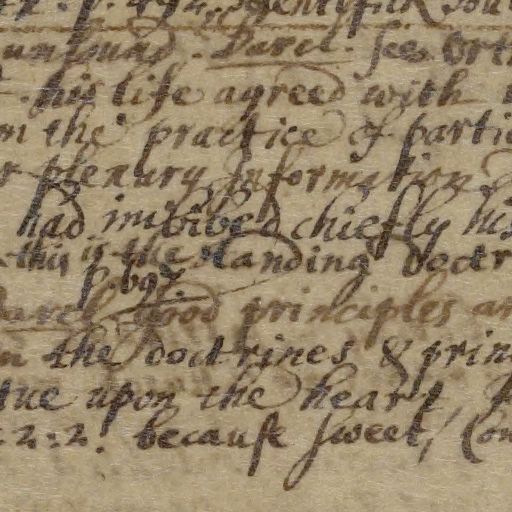 p. 492. Scentifick
unsound. Darel. sies
his life agreed with
the practice of partic
plenary Information
had imbibed chiefly his
this is the standing doctr
p. 697
good principles an
the doctrines & prin
tue upon the heart
2:2. becauſe ſweet, Con